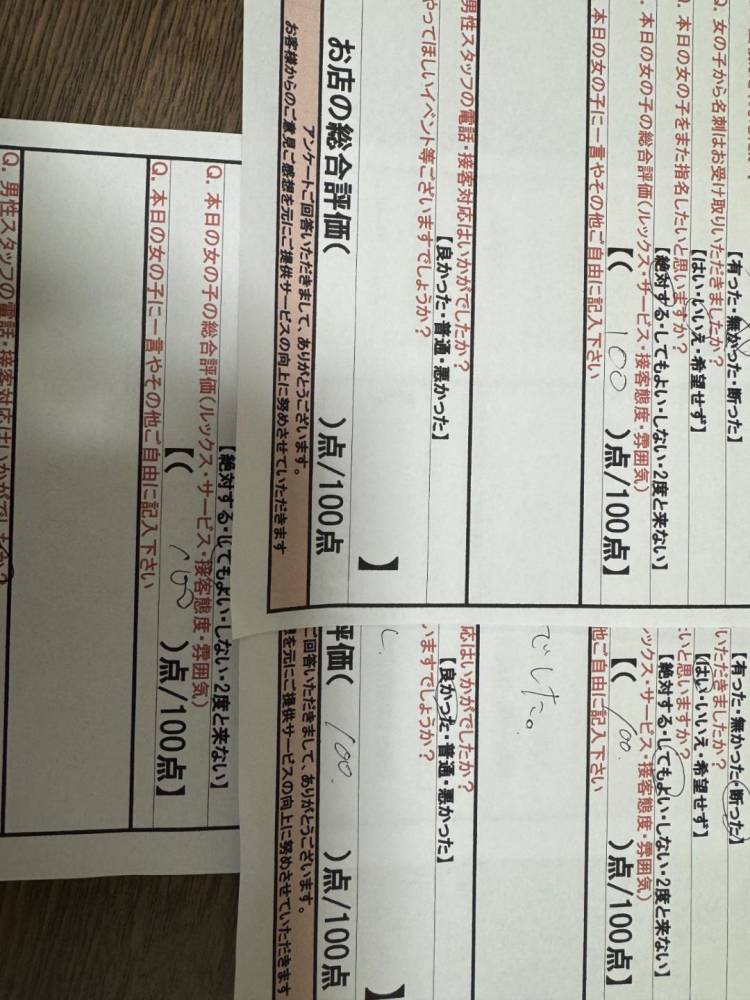 【有った・無かった・断った】
Q. 女の子から名刺はお受け取りいただきましたか？
【はい・いいえ・希望せず】
Q. 本日の女の子をまた指名したいと思いますか？
【絶対する・してもよい・しない・2度と来ない】
Q. 本日の女の子の総合評価(ルックス・サービス・接客態度・雰囲気)
【( 100 )点/100点】
本日の女の子に一言やその他ご自由に記入下さい
男性スタッフの電話・接客対応はいかがでしたか？
【良かった・普通・悪かった】
やってほしいイベント等ございますでしょうか？
】
お店の総合評価( )点/100点
アンケートご回答いただきまして、ありがとうございます。
お客様からのご意見ご感想を元にご提供サービスの向上に努めさせていただきます
【有った・無かった・断った】
いただきましたか？
【はい・いいえ・希望せず】
いと思いますか？
【絶対する・してもよい・しない・2度と来ない】
ックス・サービス・接客態度・雰囲気)
【( 100. )点/100点】
他ご自由に記入下さい
でした。
応はいかがでしたか？
【良かった・普通・悪かった】
いますでしょうか？
】
評価( 100. )点/100点
ご回答いただきまして、ありがとうございます。
を元にご提供サービスの向上に努めさせていただきます
【絶対する・してもよい・しない・2度と来ない】
Q. 本日の女の子の総合評価(ルックス・サービス・接客態度・雰囲気)
【( 100 )点/100点】
Q. 本日の女の子に一言やその他ご自由に記入下さい
Q. 男性スタッフの電話・接客対応はいかがでしたか？